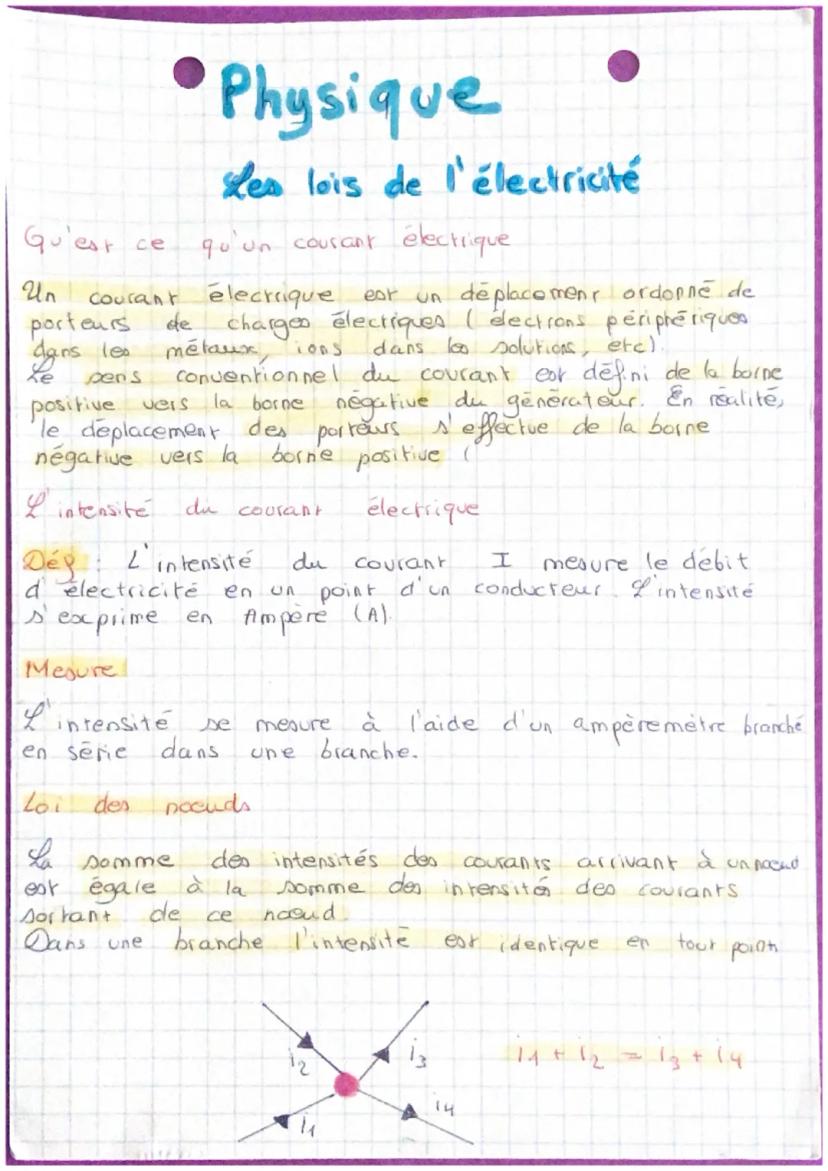 Physique
Les lois de l'électricité
Qu'est ce qu'un courant électrique
Un courant électrique est un déplacement ordonné de
porteurs de charges électriques ( électrons périphériques
dans les métaux, ions dans les solutions, etc).
Le sens conventionnel du courant est défini de la borne
positive vers la borne négative du générateur. En réalité,
le déplacement des porteurs s'effectue de la borne
négative vers la borne positive (
L'intensité du courant électrique
Déf : L'intensité du courant I mesure le débit
d'électricité en un point d'un conducteur. L'intensité
s'exprime en Ampère (A).
Mesure
L'intensité se mesure à l'aide d'un ampèremètre branché
en série dans une branche.
Loi des nœuds
La somme des intensités des courants arrivant à un nœud
est égale à la somme des intensités des courants
sortant de ce nœud.
Dans une branche l'intensité est identique en tout point
i2 i3
i1 + i2 = i3 + i4
i1 i4